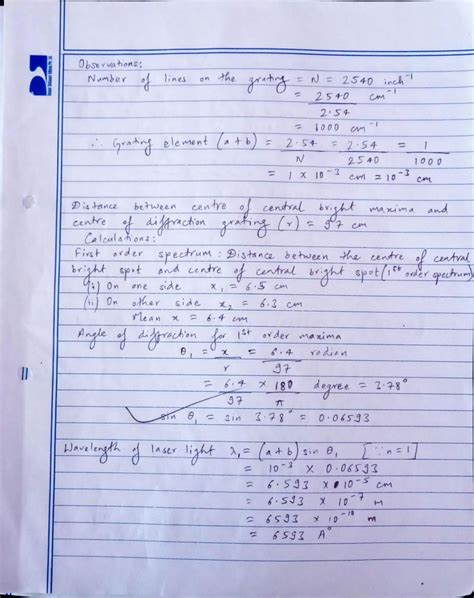 Observations:
Number of lines on the grating = N = 2540 inch⁻¹
= 2540/2.54 cm⁻¹
= 1000 cm⁻¹
∴ Grating element (a+b) = 2.54/N = 2.54/2540 = 1/1000
= 1 × 10⁻³ cm = 10⁻³ cm
Distance between centre of central bright maxima and
centre of diffraction grating (r) = 97 cm
Calculations:
First order spectrum: Distance between the centre of central
bright spot and centre of central bright spot (1st order spectrum)
(i) On one side x₁ = 6.5 cm
(ii) On other side x₂ = 6.3 cm
Mean x = 6.4 cm
Angle of diffraction for 1st order maxima
θ₁ = x/r = 6.4/97 radian
= 6.4/97 × 180/π degree = 3.78°
sin θ₁ = sin 3.78° = 0.06593
Wavelength of laser light λ₁ = (a+b) sin θ₁ [∵ n=1]
= 10⁻³ × 0.06593
= 6.593 × 10⁻⁵ cm
= 6.593 × 10⁻⁷ m
= 6593 × 10⁻¹⁰ m
= 6593 A°